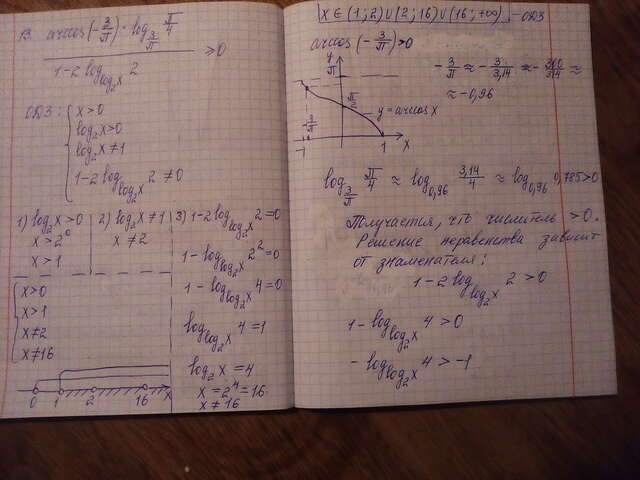 13. arccos(-3/π) · log_{3/π} π/4
1-2 log_{log₂x} 2
≥0
ОДЗ:
x>0
log₂x>0
log₂x≠1
1-2 log_{log₂x} 2 ≠0
1) log₂x>0
x>2⁰
x>1
2) log₂x≠1
x≠2
3) 1-2 log_{log₂x} 2=0
1-log_{log₂x} 2²=0
1-log_{log₂x} 4=0
log_{log₂x} 4=1
log₂x=4
x=2⁴=16
x≠16
x>0
x>1
x≠2
x≠16
0 1 2 16 x
x∈(1;2)∪(2;16)∪(16;+∞) -ОДЗ
arccos(-3/π)>0
y
π
π/2
y=arccos x
-1 -3/π 1 x
-3/π ≈ -3/3,14 ≈ -300/314 ≈
≈ -0,96
log_{3/π} π/4 ≈ log_{0,96} 3,14/4 ≈ log_{0,96} 0,785>0
Получается, что числитель >0.
Решение неравенства зависит
от знаменателя:
1-2 log_{log₂x} 2 >0
1-log_{log₂x} 4>0
-log_{log₂x} 4>-1